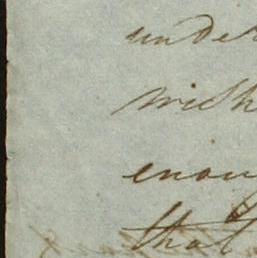 under
wish
enou
that